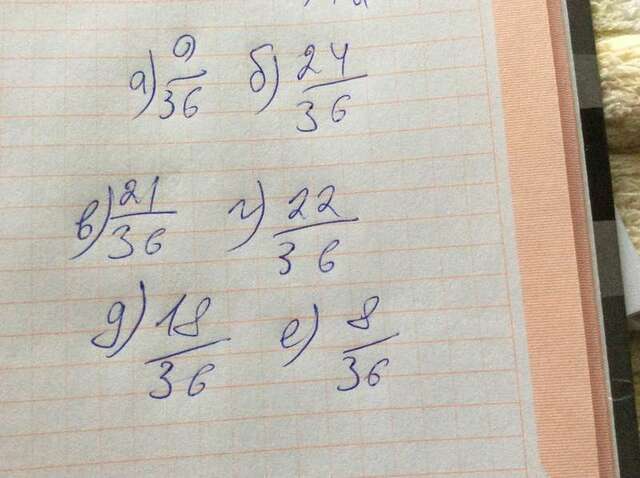 а) 9/36 б) 24/36
в) 21/36 г) 22/36
д) 18/36 е) 8/36